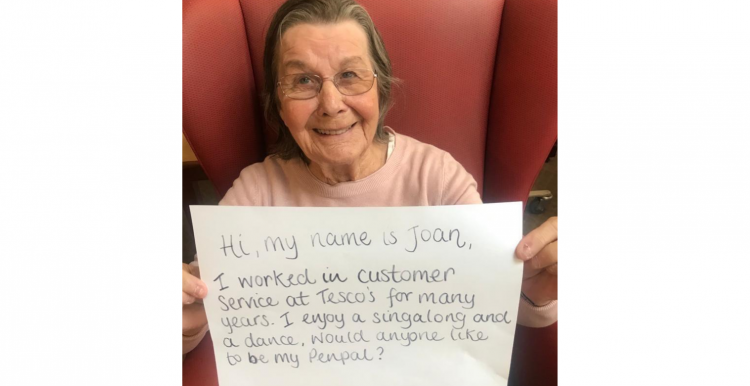 Hi, my name is Joan,
I worked in customer
service at Tesco's for many
years. I enjoy a singalong and
a dance, would anyone like
to be my Penpal?